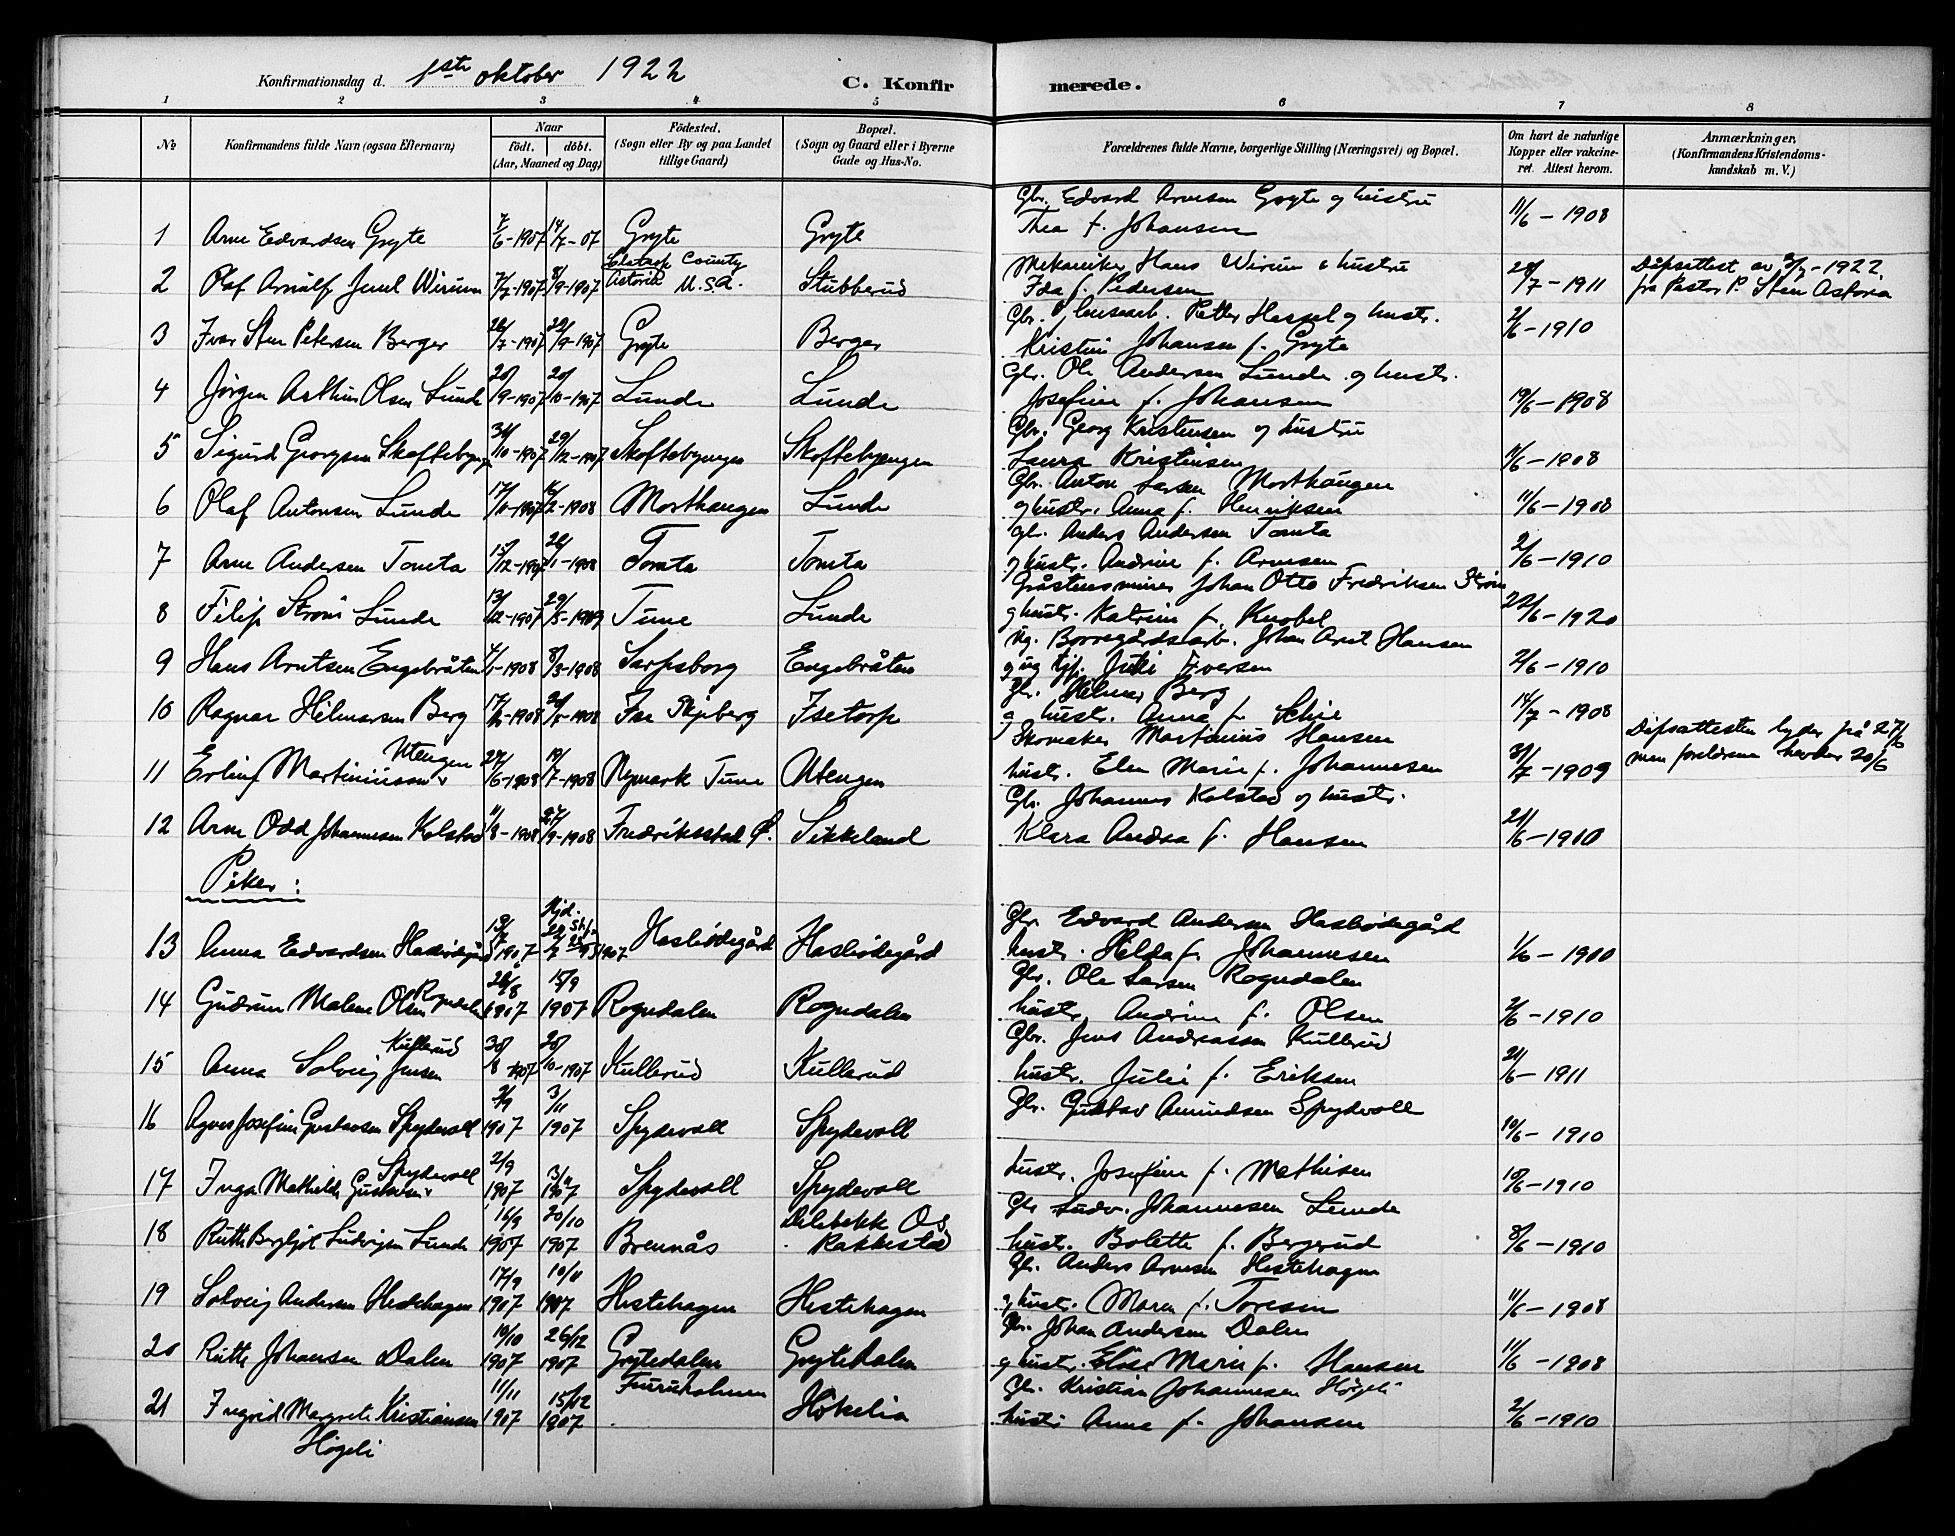 Konfirmationsdag d. 1ste oktober 1922
C. Konfirmerede.
1 2 3 4 5 6 7 8
No
Konfirmandens fulde Navn (ogsaa Efternavn)
Naar
födt. döbt.
(Aar, Maaned og Dag)
Födested.
(Sogn eller By og paa Landet
tillige Gaard)
Bopæl.
(Sogn og Gaard eller i Byerne
Gade og Hus-No.
Forældrenes fulde Navne, borgerlige Stilling (Næringsvei) og Bopæl.
Om havt de naturlige
Kopper eller vakcine-
ret. Attest herom.
Anmærkninger,
(Konfirmandens Kristendoms-
kundskab m. V.)
Gbr. Edvard Arnesen Gryte og hustru
1 Arne Edvardsen Gryte 7/6-1907 14/7-07 Gryte Gryte Thea f. Johansen 11/6-1908
Clatsop County
Mekaniker Hans Wirum & hustru
Dåpsattest av /7-1922
2 Olaf Arnulf Juul Wirum 7/7-1907 8/9-1907 Astoria U.S.A. Stubberud Ida f. Pedersen 28/7-1911 fra Pastor P. Sten Astoria
Petter Hessel og hustr.
3 Ivar Sten Petersen Berger 26/7-1907 22/9-1907 Gryte Berger Kristine Johansen f. Gryte 2/6-1910
Gbr. Ole Andersen Lunde og hustr.
4 Jörgen Arthur Olsen Lunde 20/9-1907 20/10-1907 Lunde Lunde Josefine f. Johansen 19/6-1908
Gbr. Georg Kristensen og hustru
5 Sigurd Georgsen Skoftebyengen 31/10-1907 29/12-1907 Skoftebyengen Skoftebyengen Laura Kristensen 11/6-1908
Gbr. Anton Larsen Morthaugen
6 Olaf Antonsen Lunde 17/11-1907 16/2-1908 Morthaugen Lunde og hustr. Anna f. Henriksen 11/6-1908
Gbr. Anders Andersen Tomta
7 Arne Andersen Tomta 15/12-1907 26/1-1908 Tomta Tomta og hustr. Andrine f. Arnesen 2/6-1910
Gråstensminer Johan Otto Fredriksen Ström
8 Filip Ström Lunde 13/12-1907 29/5-1909 Tune Lunde og hustr. Katrine f. Knobel 22/6-1920
Ug. Borregårdsarb. Johan Arnt Hansen
9 Hans Arntsen Engebråten 4/1-1908 8/3-1908 Sarpsborg Engebråten og ug tjp. Juli Iversen 2/6-1910
Gbr. Hilmar Berg
10 Ragnar Hilmarsen Berg 17/-1908 2/5-1908 Ise Skjeberg Isetorp og hustr. Anna f. Schie 14/7-1908
Utengen
Skomaker Martinius Hansen
Dåpsattesten lyder på 27/6
11 Erling Martiniussen 27/6-1908 19/7-1908 Nymark Tune Utengen hustr. Elen Marie f. Johannesen 31/7-1909 men foreldrene hevder 20/6
Gbr. Johannes Kolstad og hustr.
12 Arne Odd Johannesen Kolstad 11/8-1908 27/9-1908 Fredriksstad Ø. Sikkeland Klara Andrea f. Hansen 21/6-1910
Piker:
Hjd.
Gbr Edvard Andersen Haslbödegård
13 Anna Edvardsen 1907 1907 Haslbödegård Haslbödegård hustr. Hilda f. Johannesen 1/6-1910
Gbr. Ole Larsen Rogndalen
14 Gudrun Malene Olsen Rogndalen 26/8 1907 15/9 1907 Rogndalen Rogndalen hustr. Andrine f. Olsen 2/6-1910
Kullerud
Gbr. Jens Andreassen Kullerud
15 Anna Solveig Jensen 30/8-1907 20/10-1907 Kullerud Kullerud hustr. Julie f. Eriksen 21/6-1911
Gbr. Gustav Amundsen Spydevoll
16 Agnes Josefine Gustavsen Spydevoll 2/9 1907 3/11 1907 Spydevoll Spydevoll 10/6-1910
Spydevoll
17 Inga Mathilde Gustavsen 2/9 1907 3/11 1907 Spydevoll Spydevoll hustr. Josefine f. Mathisen 10/6-1910
Gbr Ludv. Johannesen Lunde
18 Ruth Bergljot Ludvigsen Lunde 16/9 1907 20/10 1907 Brennås Delebekk Os Rakkestad hustr. Bolette f. Bergerud 8/6-1910
Gbr. Anders Arnesen Hestehagen
19 Solveig Andersen Hestehagen 17/9 1907 10/11 1907 Hestehagen Hestehagen og hustr. Maren f. Toresen 11/6-1908
Gbr. Johan Andersen Dalen
20 Ruth Johansen Dalen 10/10 1907 26/12 1907 Grytedalen Grytedalen og hustr. Elise Marie f. Hansen 11/6-1908
Furuholmen
Gbr. Kristian Johannesen Högeli
21 Ingrid Margrete Kristiansen 11/11 1907 15/12 1907 Hökelia hustr Anne f. Johansen 2/6-1910
Högeli